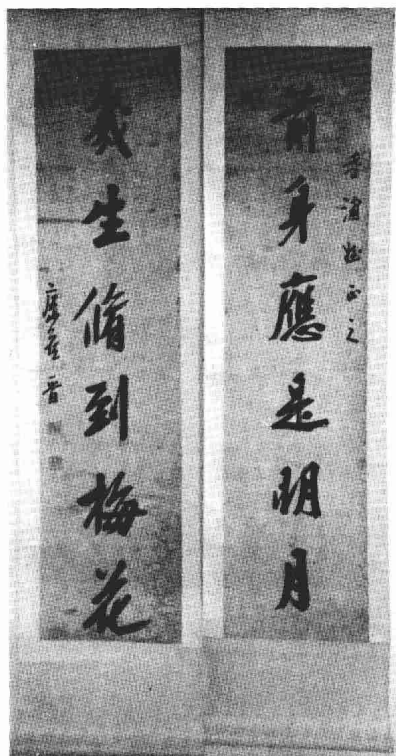 前身應是明月
正之
幾生脩到梅花